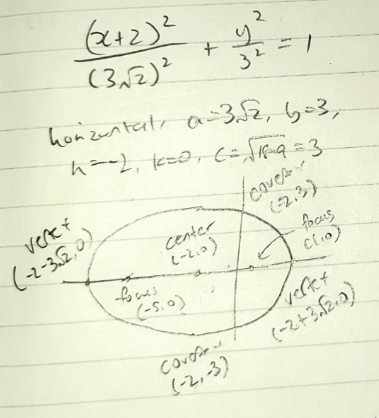 (x+2)²/(3√2)² + y²/3² = 1
horizontal, a=3√2, b=3,
h=-2, k=0, c=√18-9 = 3
covert
(-2,3)
vert
(-2-3√2,0)
center
(-2,0)
focus
(1,0)
focus
(-5,0)
vert
(-2+3√2,0)
covert
(-2,-3)